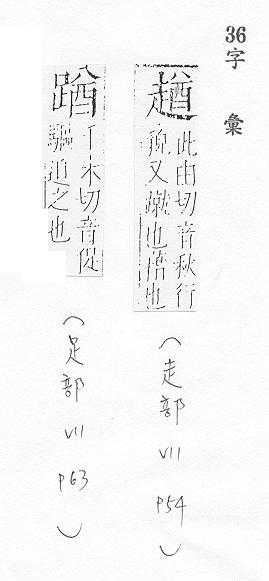 36字 彙
趥
此由切音秋行
貌又蹴也
(走部 VII P54)
千木切音促
驅迫之也
(足部 VII P63)